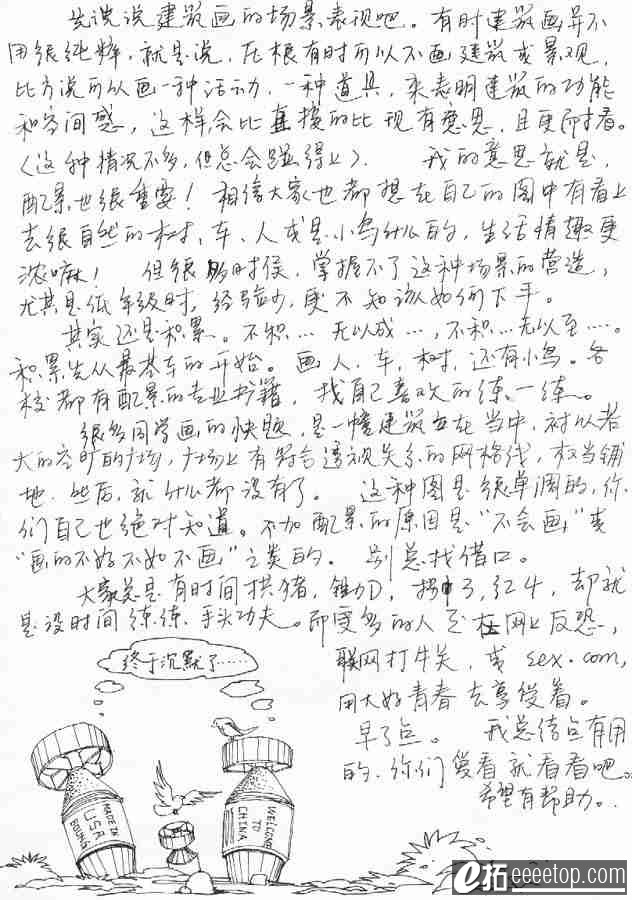 先谈谈建筑画的场景表现吧。有时建筑画并不
用很纯粹,就是说,在很有时可以不画建筑或景观,
比方说可以画一种活动,一种道具,来表明建筑的功能
和空间感,这样会比直接的比现有意思,且更耐看。
(这种情况不多,但总会碰得上)。 我的意思就是,
配景也很重要!相信大家也都想在自己的图中有看上
去很自然的树、车、人或是小鸟什么的,生活情趣更
浓嘛! 但很多时候,掌握不了这种场景的营造,
尤其是低年级时,经验少,更不知该如何下手。
其实还是积累。不积…无以成…,不积…无以至…。
积累先从最基本的开始。画人、车、树,还有小鸟。各
校都有配景的专业书籍,找自己喜欢的练一练。
很多同学画的快题,是一幢建筑立在当中,衬以若
大的空旷的广场,广场上有符合透视关系的网格线,权当铺
地,然后,就什么都没有了。 这种图是很单调的,你
们自己也绝对知道。不加配景的原因是“不会画”或
“画的不好不如不画”之类的。 别总找借口。
大家总是有时间拱猪,锄D,拐3,红4,却就
是没时间练练手头功夫。即更多的人是在网上反恐,
联网打牛关,或sex.com,
用大好青春去享受着。
早了点。 我总结点有用
的,你们爱看就看看吧。
希望有帮助。
终于沉默了……
MADE IN
USA
BOEING
WELCOME
TO
CHINA
e拓eeeetop.com